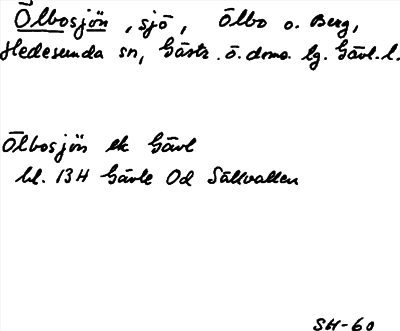 Ölbosjön, sjö, Ölbo o. Berg,
Hedesunda sn, Gästr. ö. doms. lg. Gävl. l.
Ölbosjön ek Gävl
bl. 13H Gävle 0d Sällvallen
SH-60